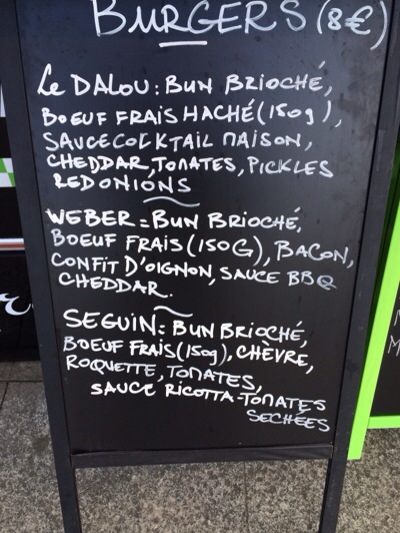 BURGERS (8€)
Le DALOU: BUN BRIOCHÉ,
BOEUF FRAIS HACHÉ (150g),
SAUCE COCKTAIL MAISON,
CHEDDAR, TOMATES, PICKLES
RED ONIONS
WEBER = BUN BRIOCHÉ,
BOEUF FRAIS (150G), BACON,
CONFIT D'OIGNON, SAUCE BBQ
CHEDDAR.
SEGUIN: BUN BRIOCHÉ,
BOEUF FRAIS (150g), CHÈVRE,
ROQUETTE, TOMATES,
SAUCE RICOTTA-TOMATES
SECHÉES